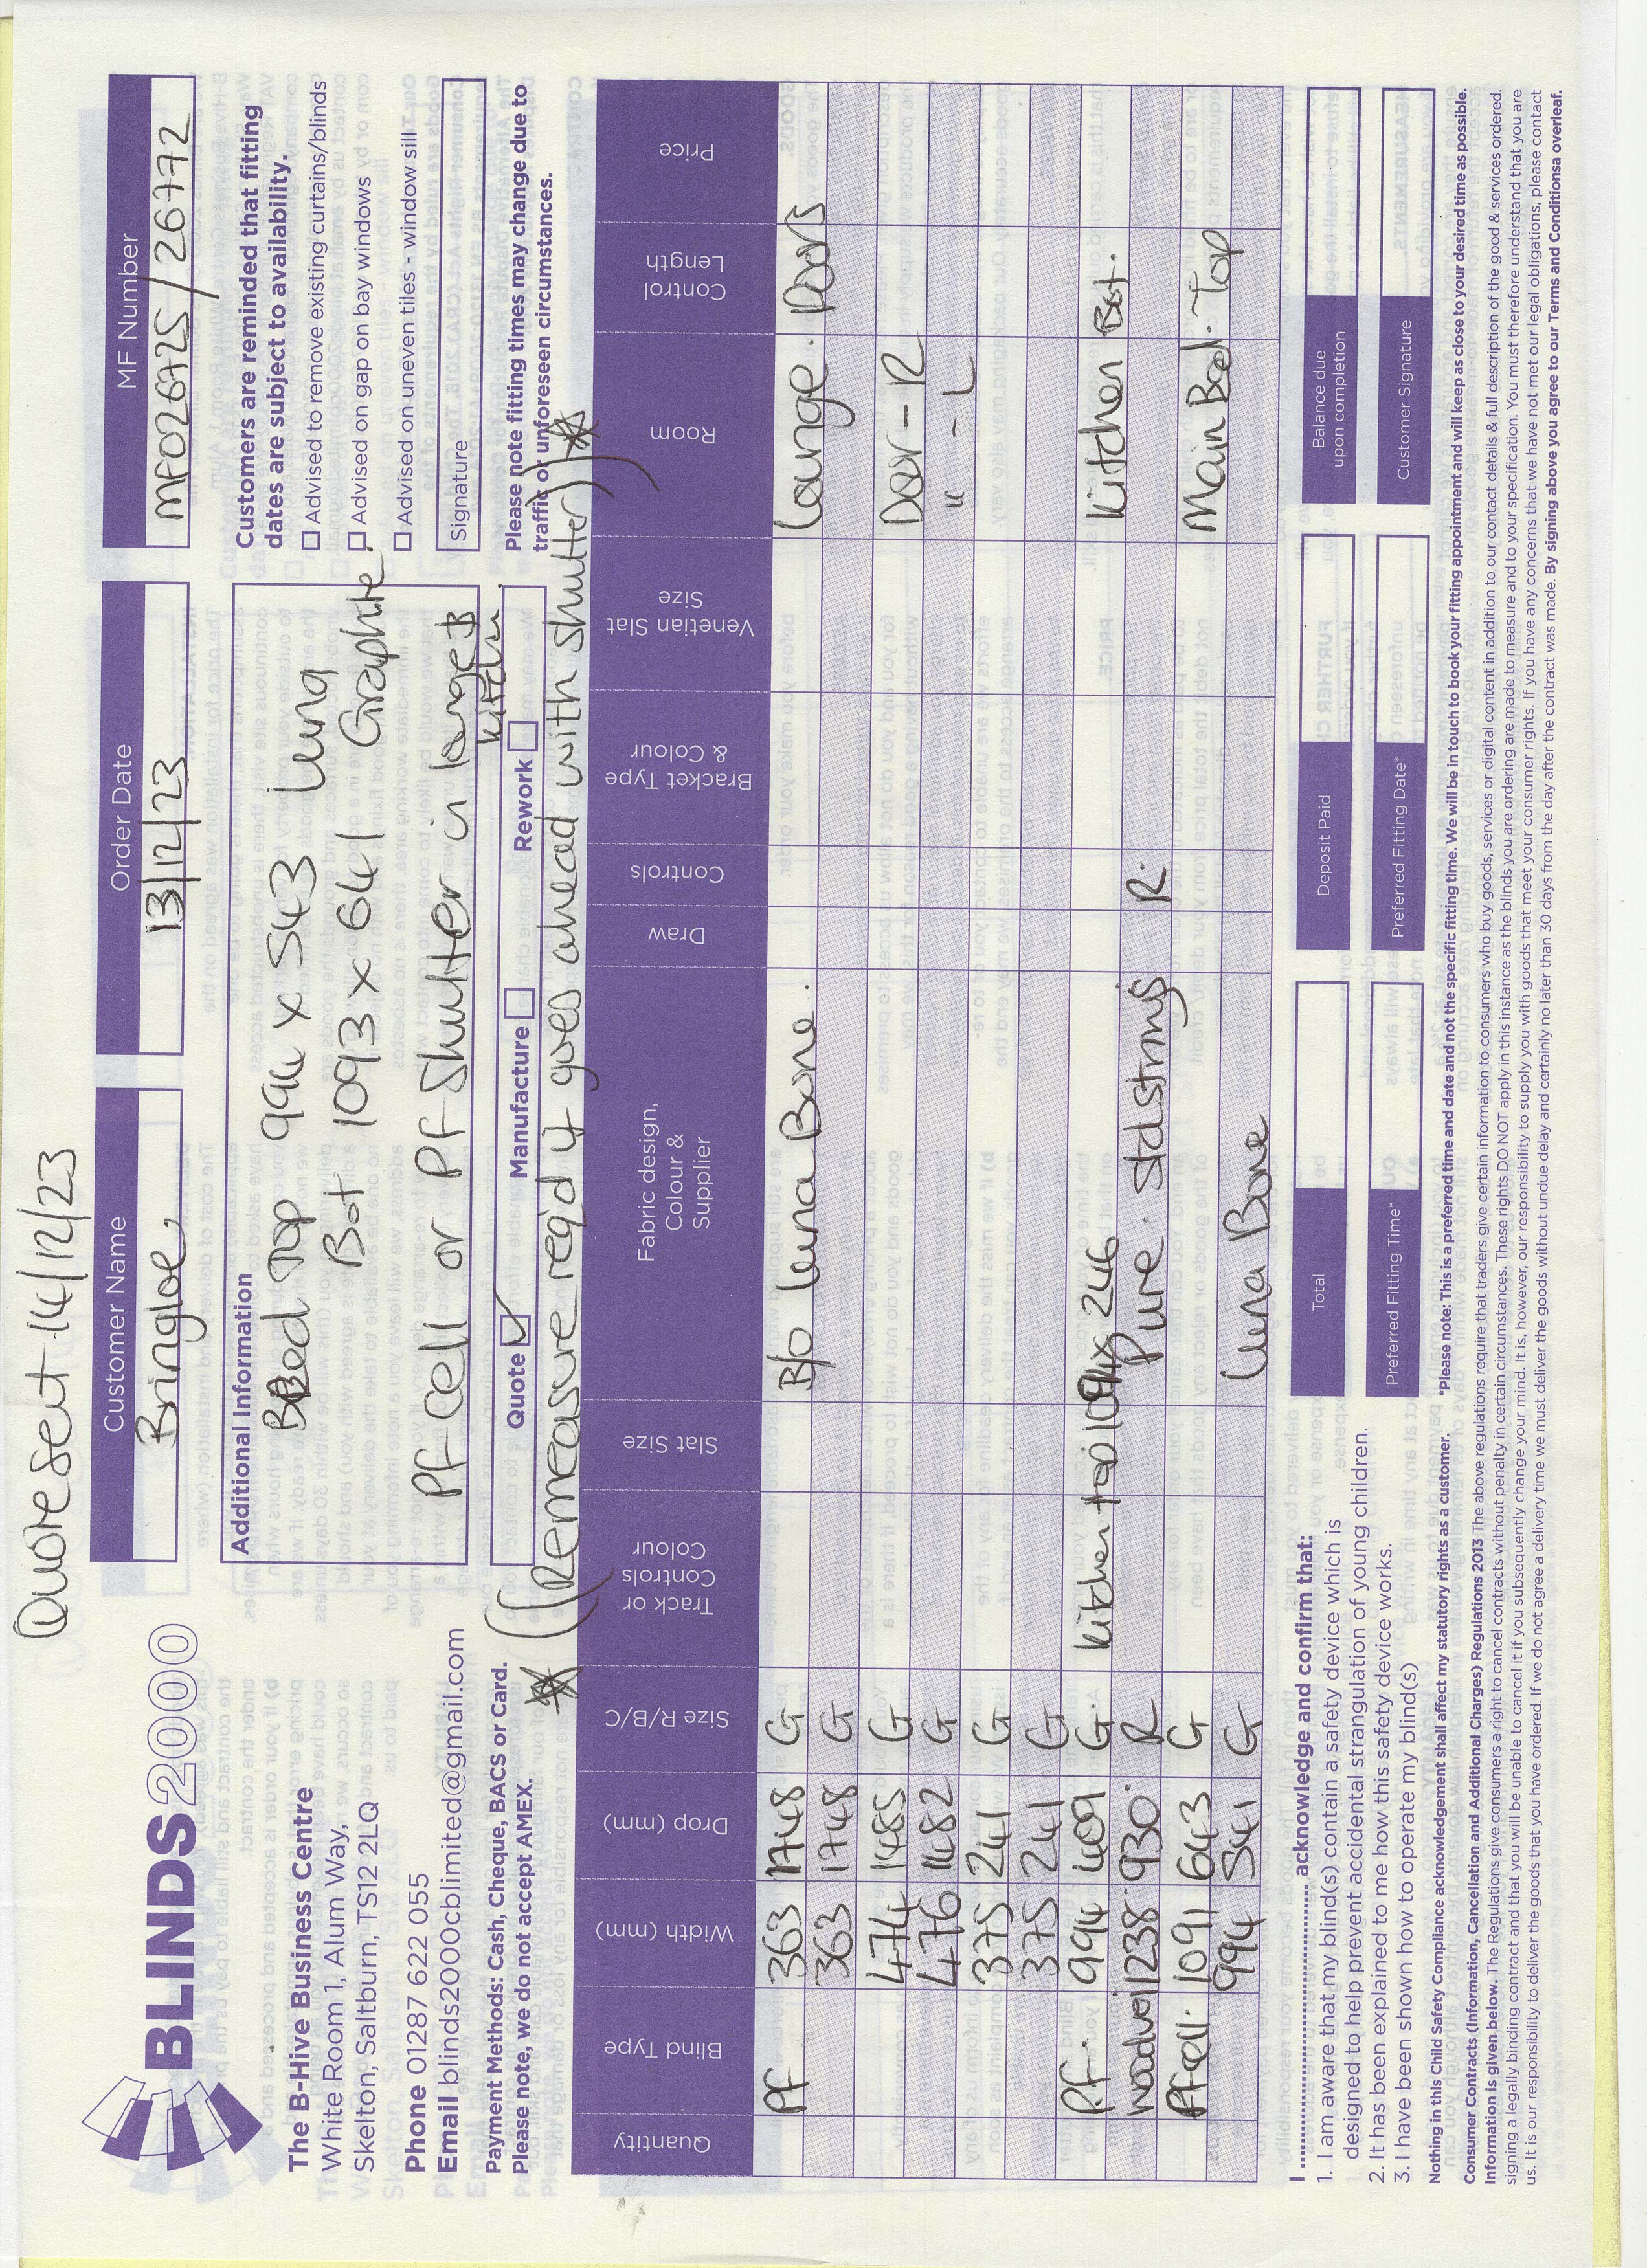 Quote sent 14/12/23
BLINDS2000
The B-Hive Business Centre
White Room 1, Alum Way,
Skelton, Saltburn, TS12 2LQ
Phone 01287 622 055
Email blinds2000cblimited@gmail.com
Payment Methods: Cash, Cheque, BACS or Card.
Please note, we do not accept AMEX.
Customer Name
Bringloe
Order Date
13/12/23
MF Number
MF026725/26772
Additional Information
Bed Top 994 x 543 Luna
Bot 1093 x 641 Graphite.
PF Cell or PF Shutter in lounge &
kitchen
Quote ✓ Manufacture Rework
Customers are reminded that fitting
dates are subject to availability.
Advised to remove existing curtains/blinds
Advised on gap on bay windows
Advised on uneven tiles - window sill
Signature
Please note fitting times may change due to
traffic or unforeseen circumstances.
* (Remeasure req'd if goes ahead with shutter) *
Quantity Blind Type Width (mm) Drop (mm) Size R/B/C Track or Controls Colour Slat Size Fabric design, Colour & Supplier Draw Controls Bracket Type & Colour Venetian Slat Size Room Control Length Price
PF 363 1748 G B/o Luna Bone. Lounge. Doors
363 1748 G
474 1485 G Door - R
476 1482 G " - L
375 241 G
375 241 G
P.f. 994 409 G. kitchen top 1094 x 246 Kitchen Bot.
1238 930 R Pure. Std strings R.
Pf cell. 1091 643 G Main Bed. Top
994 541 G Luna Bone
I .......... acknowledge and confirm that:
1. I am aware that my blind(s) contain a safety device which is
designed to help prevent accidental strangulation of young children.
2. It has been explained to me how this safety device works.
3. I have been shown how to operate my blind(s)
Total
Deposit Paid
Balance due upon completion
Preferred Fitting Time*
Preferred Fitting Date*
Customer Signature
Nothing in this Child Safety Compliance acknowledgement shall affect my statutory rights as a customer. *Please note: This is a preferred time and date and not the specific fitting time. We will be in touch to book your fitting appointment and will keep as close to your desired time as possible.
Consumer Contracts (Information, Cancellation and Additional Charges) Regulations 2013 The above regulations require that traders give certain information to consumers who buy goods, services or digital content in addition to our contact details & full description of the good & services ordered.
Information is given below. The Regulations give consumers a right to cancel contracts without penalty in certain circumstances. These rights DO NOT apply in this instance as the blinds you are ordering are made to measure and to your specification. You must therefore understand that you are
signing a legally binding contract and that you will be unable to cancel it if you subsequently change your mind. It is, however, our responsibility to supply you with goods that meet your consumer rights. If you have any concerns that we have not met our legal obligations, please contact
us. It is our responsibility to deliver the goods that you have ordered. If we do not agree a delivery time we must deliver the goods without undue delay and certainly no later than 30 days from the day after the contract was made. By signing above you agree to our Terms and Conditionsa overleaf.